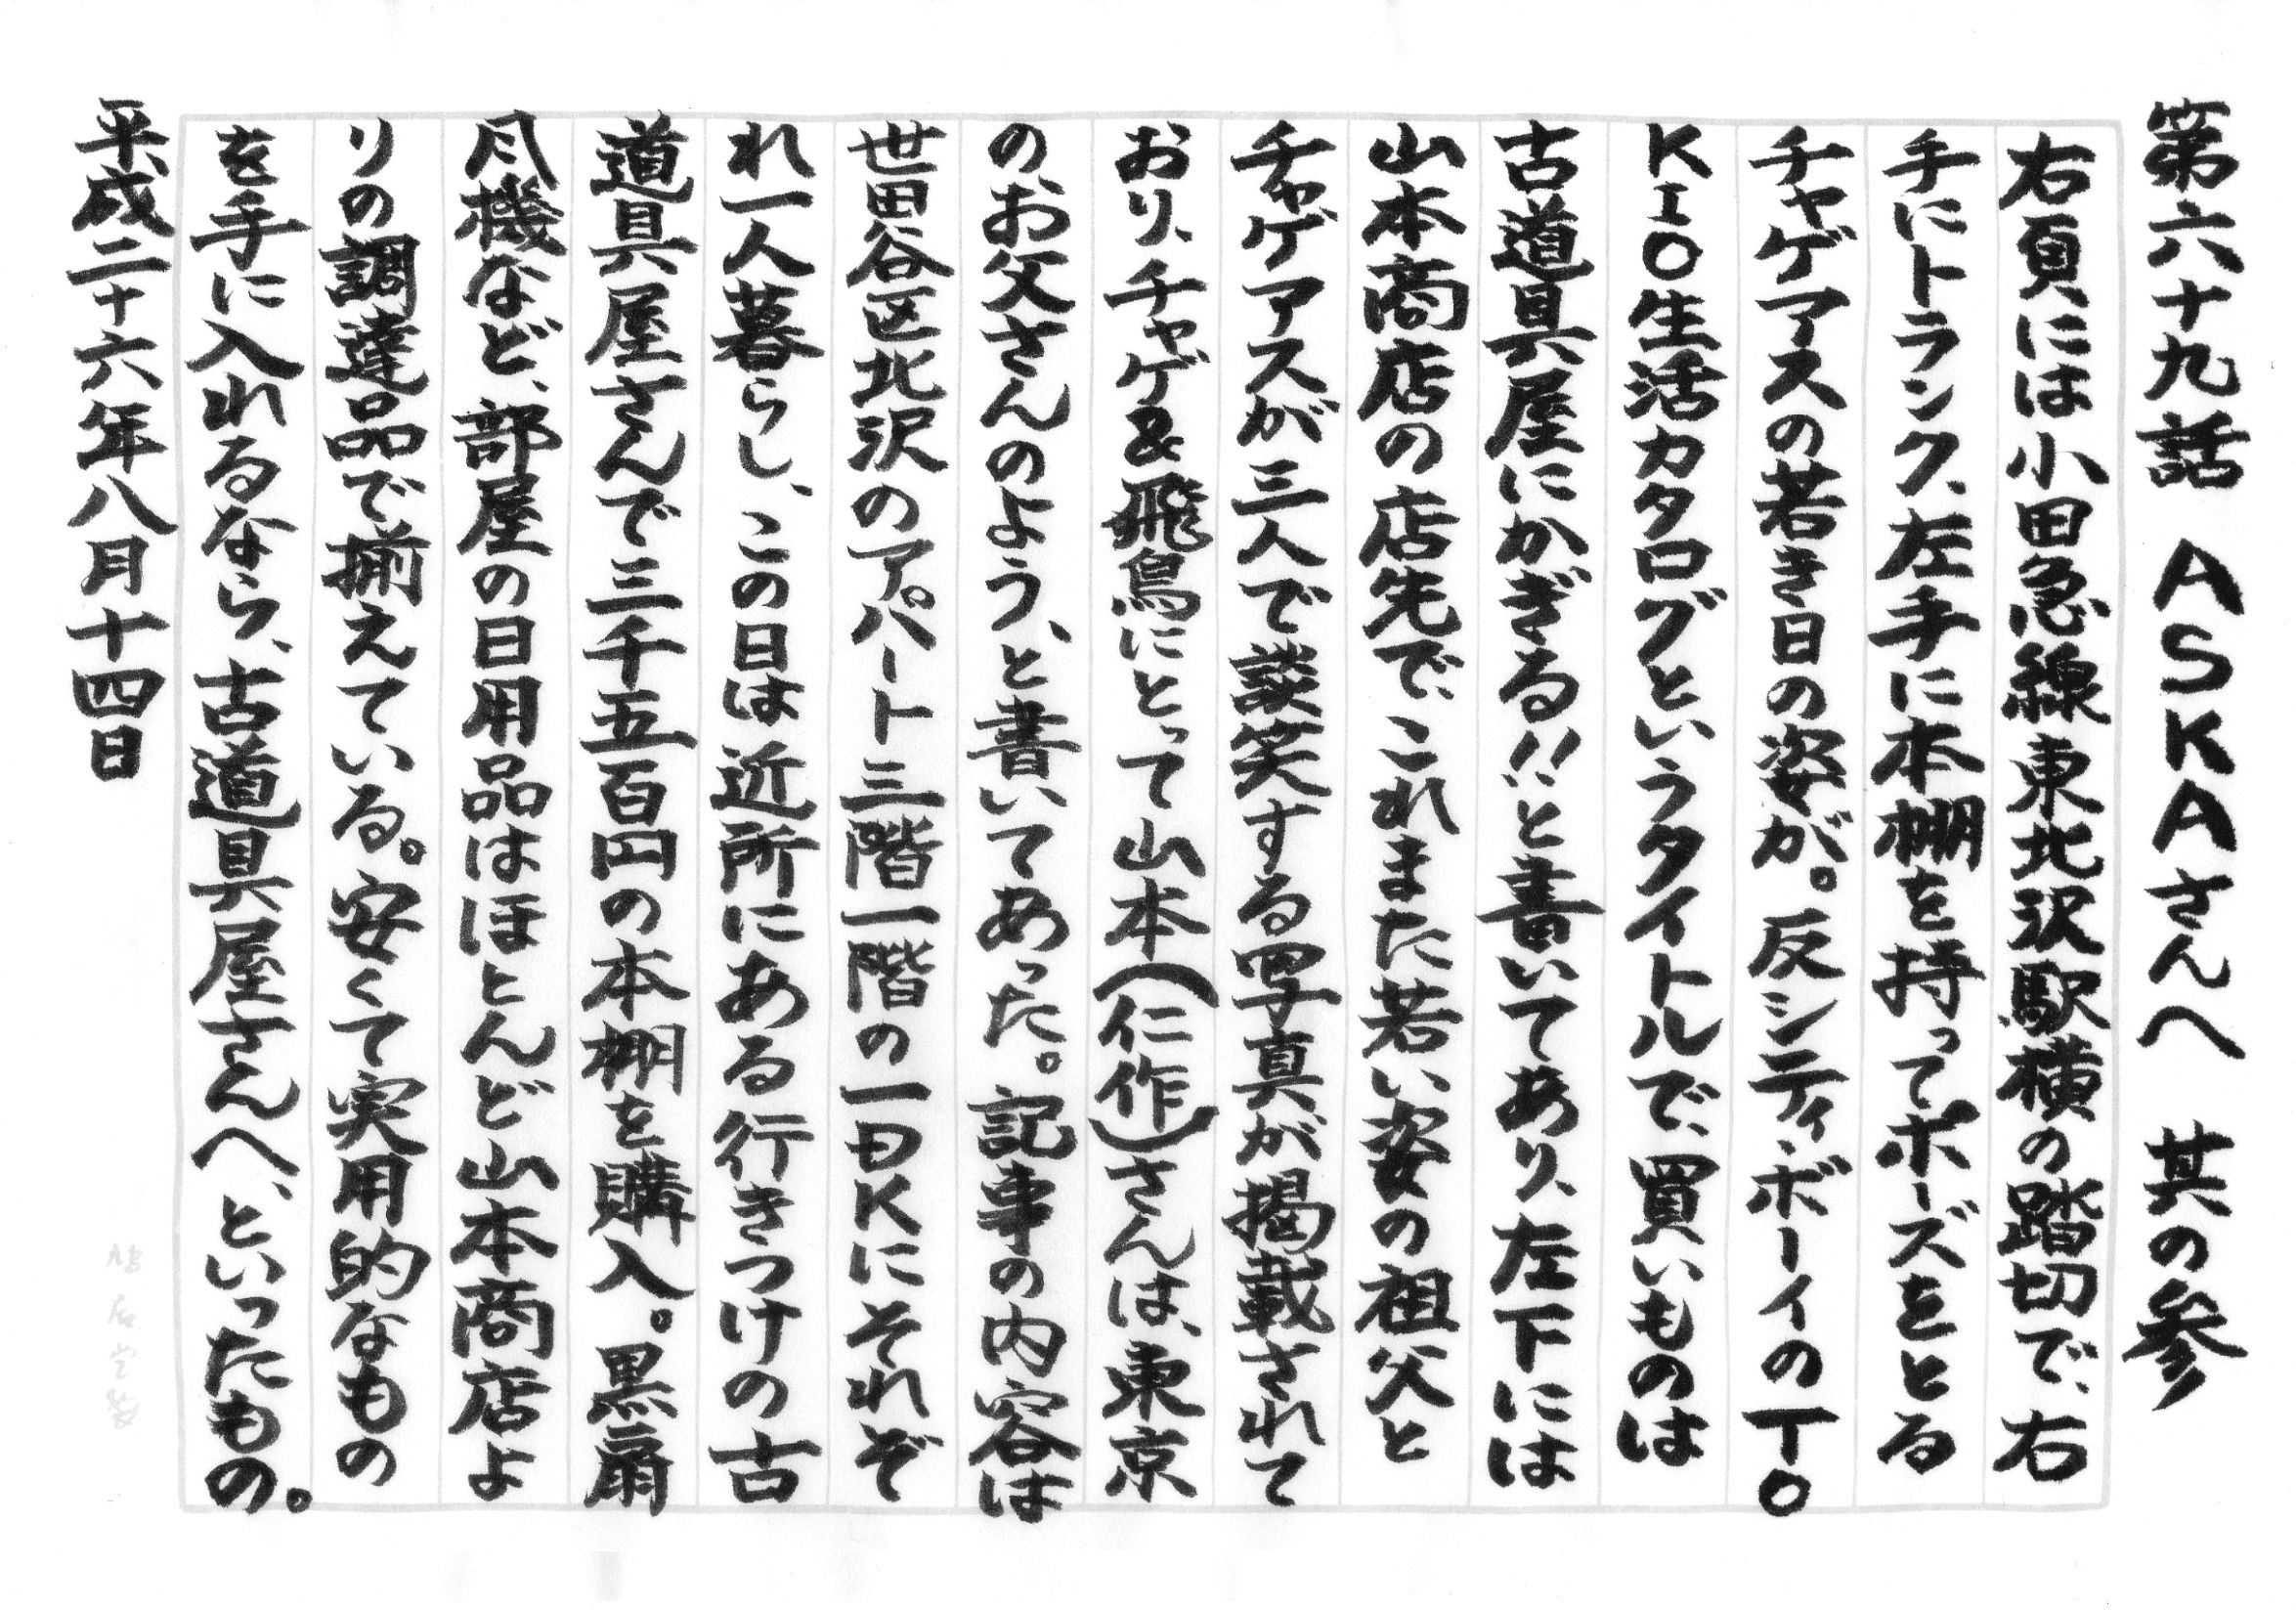 第六十九話 ASKAさんへ 其の参
右頁には小田急線東北沢駅横の踏切で、右
手にトランク、左手に本棚を持ってポーズをとる
チャゲアスの若き日の姿が。反シティ・ボーイのTO
KIO生活カタログというタイトルで、買いものは
古道具屋にかぎる!!と書いてあり、左下には
山本商店の店先で、これまた若い姿の祖父と
チャゲアスが三人で談笑する写真が掲載されて
おり、チャゲ&飛鳥にとって山本(仁作)さんは、東京
の、お父さんのよう、と書いてあった。記事の内容は
世田谷区北沢のアパート三階一階の一DKにそれぞ
れ一人暮らし、この日は近所にある行きつけの古
道具屋さんで三千五百円の本棚を購入。黒扇
風機など、部屋の日用品はほとんど山本商店よ
りの調達品で揃えている。安くて実用的なもの
を手に入れるなら、古道具屋さんへ、といったもの。
平成二十六年八月十四日